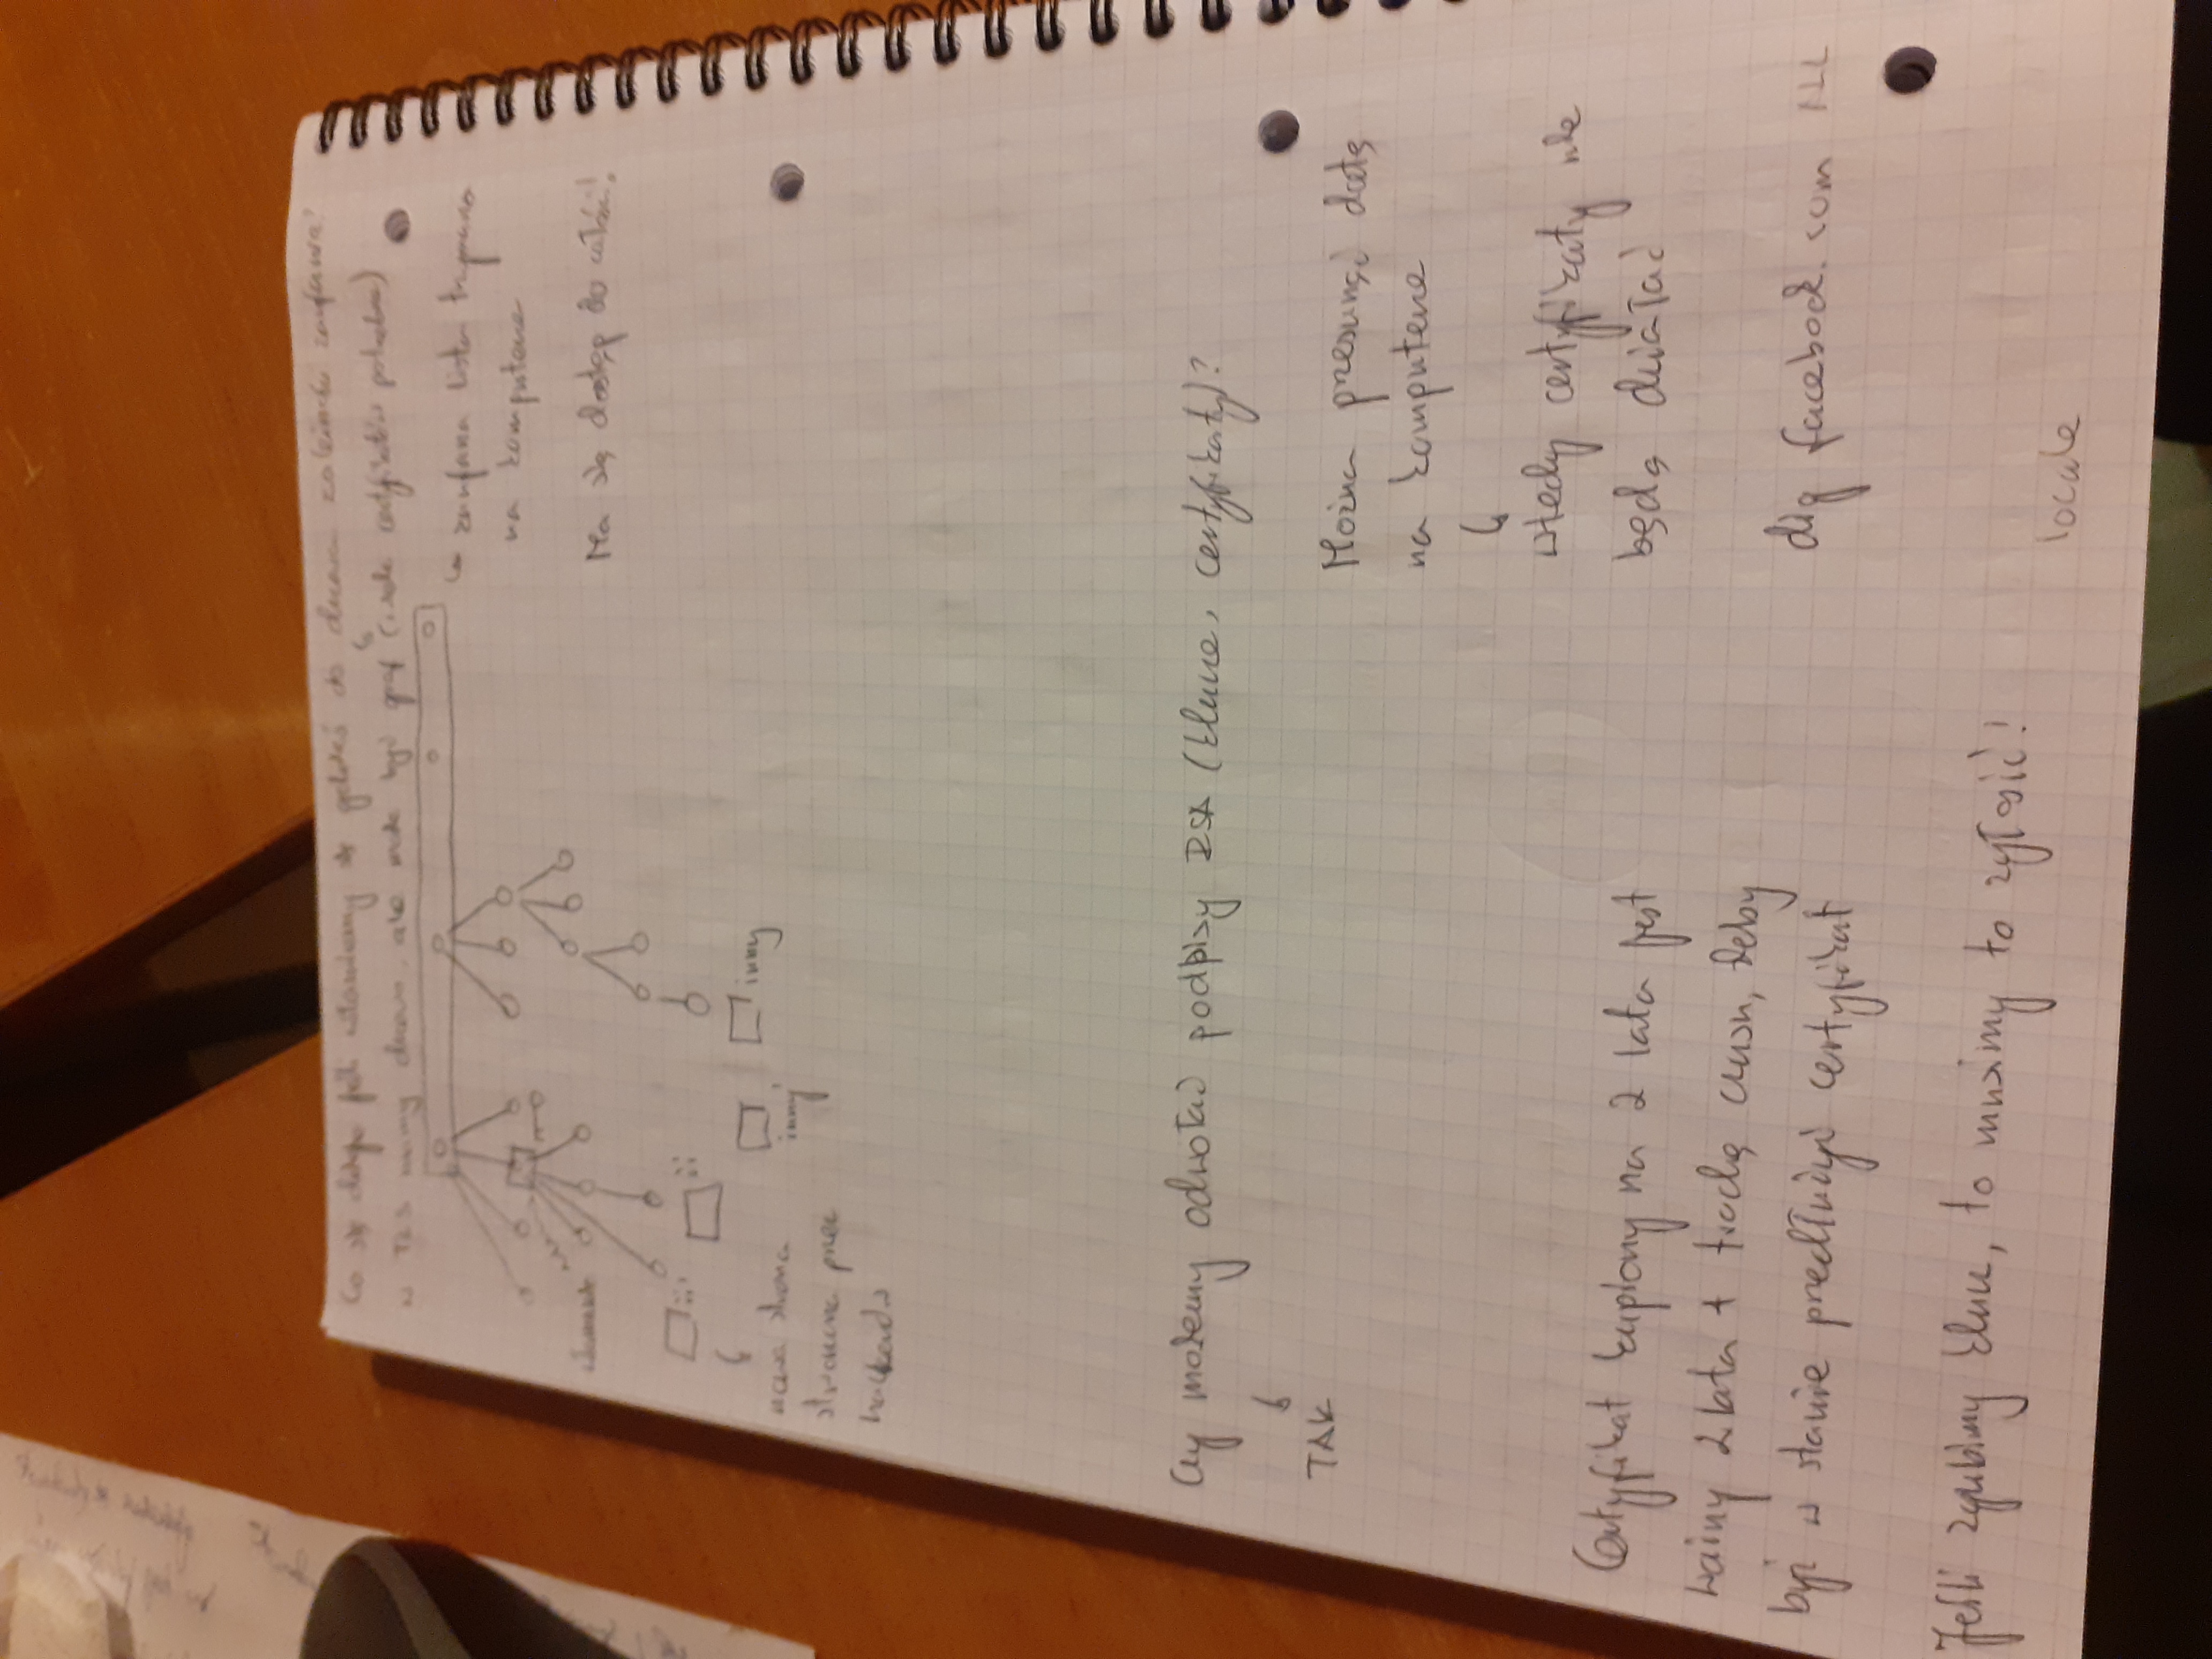 Co się dzieje jeśli włamiemy się gdzieś do drzewa zależności zaufania?
w TLS mamy drzewo, ale może być graf (wiele certyfikatów potrzebne)
zaufana lista trzymana
na komputerze
Ma się dostęp do całości!
włamanie
inny
inny
nowa strona
stworzona przez
hackerów
Czy możemy odwołać podpisy RSA (klucze, certyfikaty)?
TAK
Można przesunąć datę
na komputerze
wtedy certyfikaty nie
będą działać
Certyfikat kupiony na 2 lata jest
ważny 2 lata + trochę czasu, żeby
być w stanie przedłużyć certyfikat
dig facebook.com
Jeśli zgubimy klucz, to musimy to zgłosić!
locale